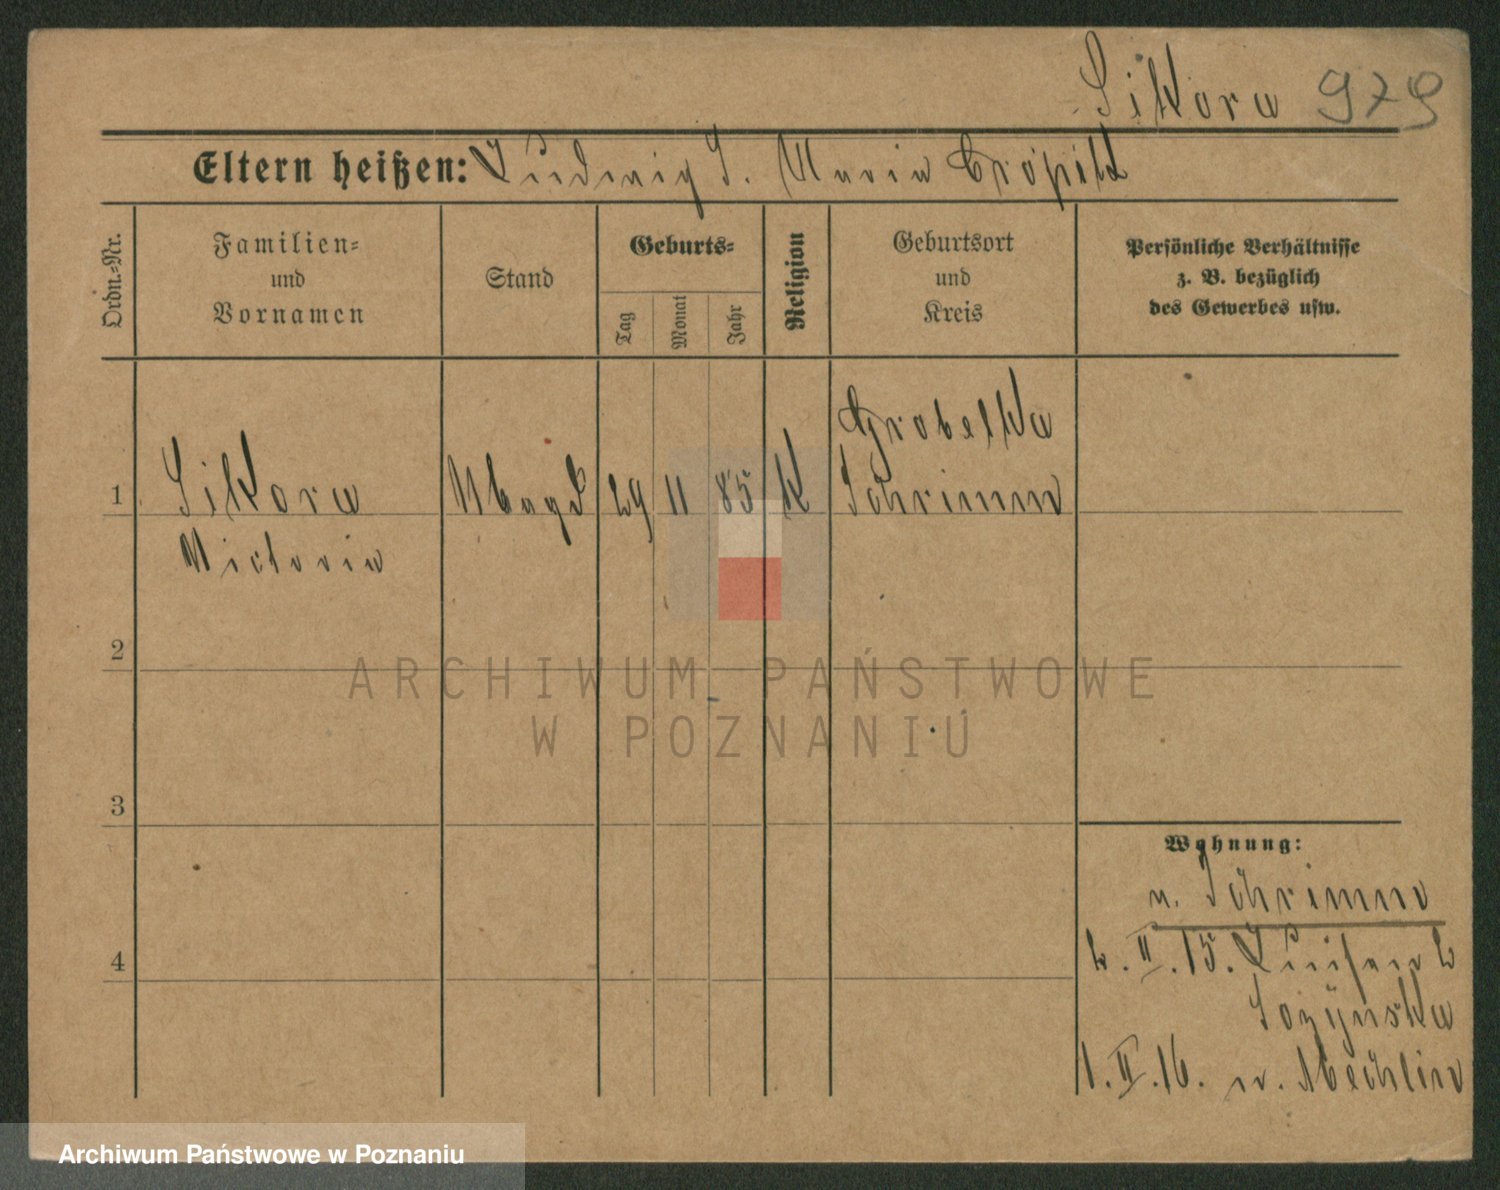 Sikora 979
Eltern heißen: Ludwig S. Maria
Ordn.-Nr.
Familien-
und
Vornamen
Stand
Geburts-
Tag
Monat
Jahr
Religion
Geburtsort
und
Kreis
Persönliche Verhältnisse
z. B. bezüglich
des Gewerbes usw.
Grobelka
1 Sikora Magd 29 11 85 K Schrimm
Victoria
2
ARCHIWUM PAŃSTWOWE
W POZNANIU
3
Wohnung:
n. Schrimm
4
2. II. 15. Luisen 2
Sozynska
1. II. 16. n. Mechlin
Archiwum Państwowe w Poznaniu